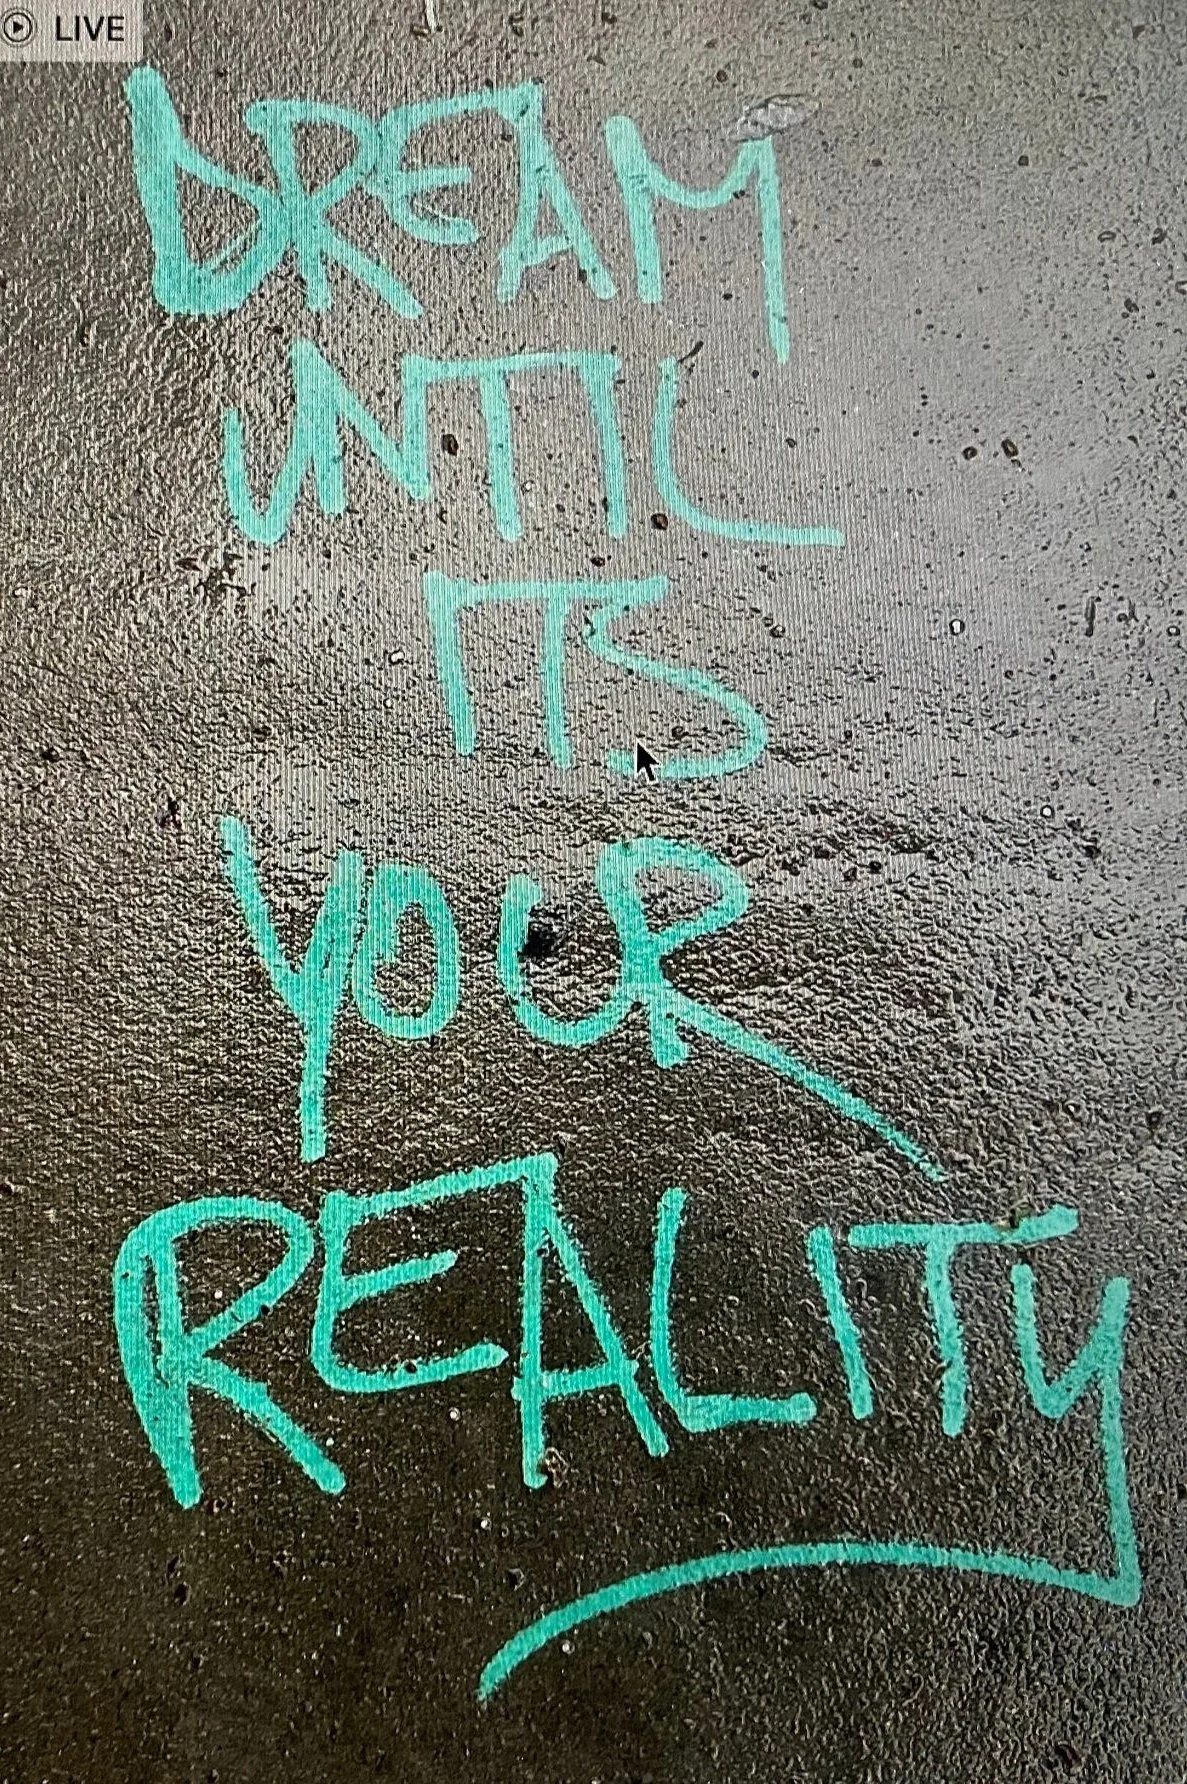 LIVE
DREAM
UNTIL
ITS
YOUR
REALITY